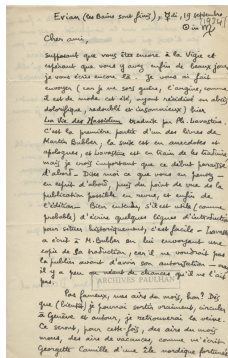 Evian (les Bains sont finis), 7di, 19 septembre
(1924)
Cher ami,
supposant que vous êtes encore à la Vigie et
espérant que vous y avez enfin de beaux jours
je vous écris encore là. Je vous ai fait
envoyer (car je me sors guère, l'angine, comme
il est de mode cet été, ayant récidivé un abcès
et insomnieux) hier
La Vie des Hassidim traduite par Ph. Lavastine
C'est la première partie d'un des livres de
Martin Bubber, la suite est en anecdotes et
apologues, et Lavastine est en train de les traduire
mais je crois important que ce début paraisse
d'abord. Dites moi ce que vous en pensez
en esprit d'abord, puis du point de vue de la
publication possible en revue, et enfin de
l'édition. Bien entendu, s'il est utile (comme
probable) d'écrire quelques lignes d'introduction
pour situer historiquement, c'est facile – Lavastine
a écrit à M. Bubber en lui envoyant une
copie de la traduction, car il ne voudrait pas
la publier avant d'avoir son autorisation –
il y a peu ou autant de chances qu'il ne l'ait
pas.
ARCHIVES PAULHAN
Pas fameux, mes airs du mois, hein? Dès
que (bientôt) je pourrai sortir vraiment, circuler
à Genève et autour, je retrouverai la veine.
Ce seront, pour cette fois, des airs du mois
mous, des airs de vacances, comme m'écrit
Georgette Camille d'une île exotique fortunée